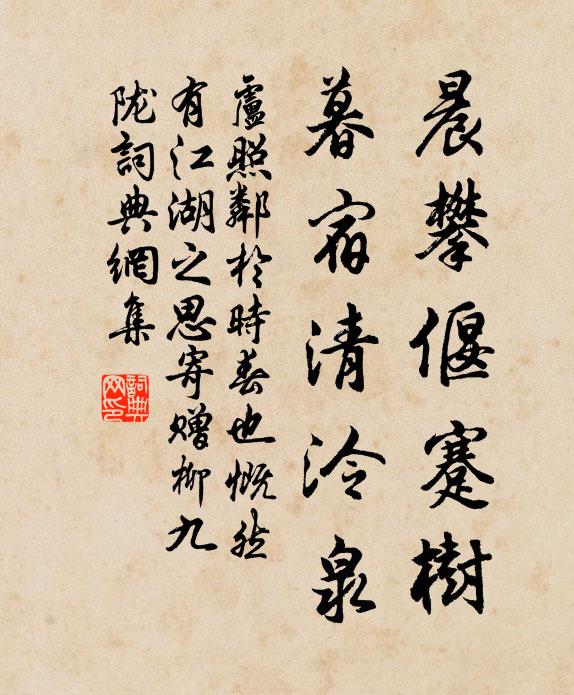 晨攀偃蹇樹
暮宿清泠泉
盧照鄰於時春也慨然
有江湖之思寄贈柳九
陇詞典網集
詞典網印